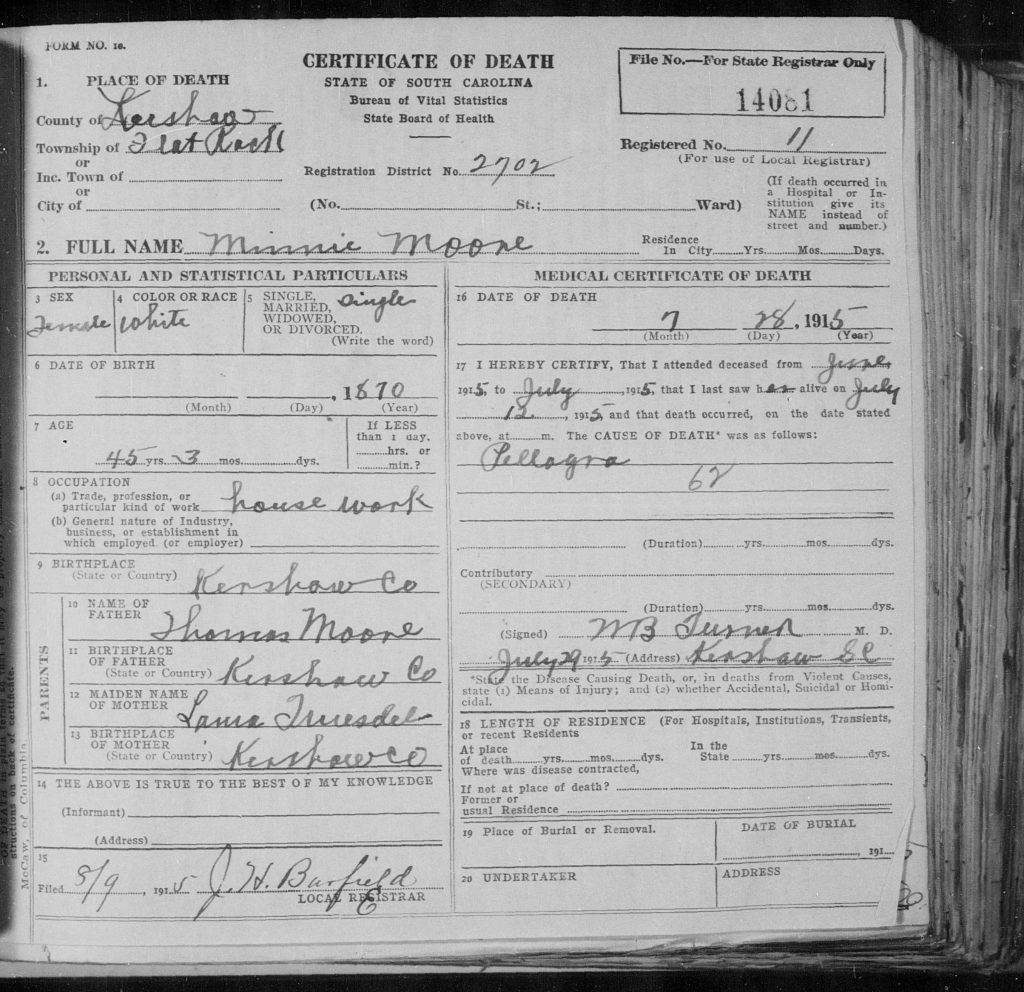 FORM NO. 10.
CERTIFICATE OF DEATH
STATE OF SOUTH CAROLINA
Bureau of Vital Statistics
State Board of Health
File No.—For State Registrar Only
14081
1. PLACE OF DEATH
County of Kershaw
Township of Flat Rock
or
Inc. Town of
or
City of
Registration District No. 2702
Registered No. 11
(For use of Local Registrar)
(No. St.; Ward)
(If death occurred in
a Hospital or In-
stitution give its
NAME instead of
street and number.)
2. FULL NAME Minnie Moore
Residence
In City Yrs. Mos. Days.
PERSONAL AND STATISTICAL PARTICULARS
3 SEX
Female
4 COLOR OR RACE
White
5 SINGLE, Single
MARRIED,
WIDOWED,
OR DIVORCED.
(Write the word)
6 DATE OF BIRTH
, 1870
(Month) (Day) (Year)
7 AGE
45 yrs. 3 mos. dys.
If LESS
than 1 day.
hrs. or
min.?
8 OCCUPATION
(a) Trade, profession, or
particular kind of work house work
(b) General nature of Industry,
business, or establishment in
which employed (or employer)
9 BIRTHPLACE
(State or Country) Kershaw Co
PARENTS
10 NAME OF
FATHER Thomas Moore
11 BIRTHPLACE
OF FATHER
(State or Country) Kershaw Co
12 MAIDEN NAME
OF MOTHER Truesdel
13 BIRTHPLACE
OF MOTHER
(State or Country) Kershaw Co
14 THE ABOVE IS TRUE TO THE BEST OF MY KNOWLEDGE
(Informant)
(Address)
15
Filed 8/9, 1915 J. H. Barfield
LOCAL REGISTRAR
MEDICAL CERTIFICATE OF DEATH
16 DATE OF DEATH
7 28, 1915
(Month) (Day) (Year)
17 I HEREBY CERTIFY, That I attended deceased from June
1915, to July, 1915, that I last saw her alive on July
12, 1915, and that death occurred, on the date stated
above, at m. The CAUSE OF DEATH* was as follows:
Pellagra
62
(Duration) yrs. mos. dys.
Contributory
(SECONDARY)
(Duration) yrs. mos. dys.
(Signed) WB Turner M. D.
July 29 1915 (Address) Kershaw SC
*State the Disease Causing Death, or, in deaths from Violent Causes,
state (1) Means of Injury; and (2) whether Accidental, Suicidal or Homi-
cidal.
18 LENGTH OF RESIDENCE (For Hospitals, Institutions, Transients,
or recent Residents
At place
of death yrs. mos. dys.
In the
State yrs. mos. dys.
Where was disease contracted,
If not at place of death?
Former or
usual Residence
19 Place of Burial or Removal.
DATE OF BURIAL
, 191
20 UNDERTAKER
ADDRESS
structions on back of certificate.
McCaw, of Columbia